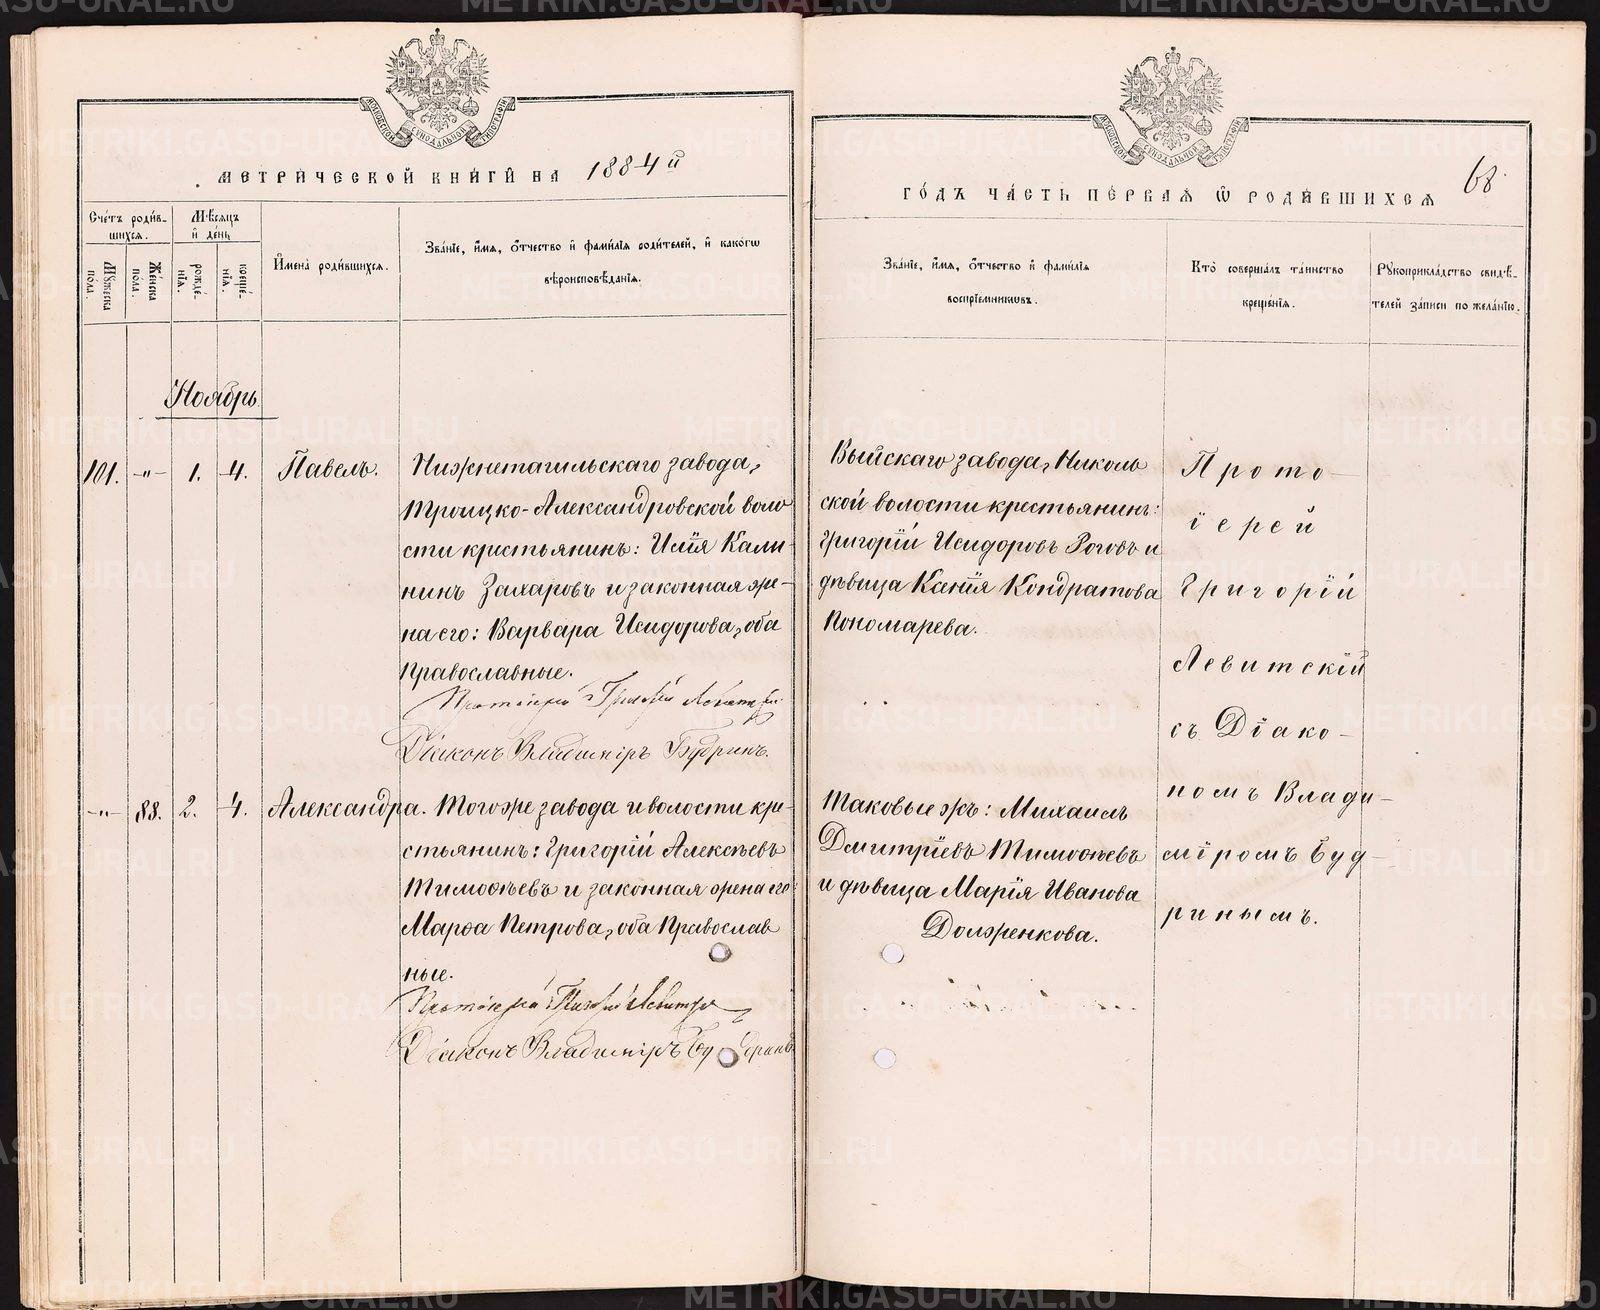 МОСКОВСКОЙ СѴНОДАЛЬНОЙ ТИПОГРАФІИ
МЕТРИ́ЧЕСКОЙ КНИ́ГИ НА 1884й
Сче́тъ роди́в-
шихсѧ.
Мѣ́сѧцъ
и҆ де́нь
Мꙋ́жеска
по́ла.
Же́нска
по́ла.
рожде́-
нїѧ.
креще́-
нїѧ.
И҆мена̀ роди́вшихсѧ.
Зва́нїе, и҆́мѧ, ѻ҆́тчество и҆ фамі́лїѧ роди́телей, и҆ како́гѡ
вѣроисповѣ́данїѧ.
Ноябрь.
101. -"- 1. 4. Павелъ.
Нижнетагильскаго завода,
Троицко-Александровской воло
сти кристьянинъ: Илія Кали-
нинъ Захаровъ и законная же-
на его: Варвара Исидорова, оба
Православные.
Протоіерей Григорій Левитскій
Діаконъ Владиміръ Будринъ.
-"- 88. 2. 4. Александра.
Тогоже завода и волости кре-
стьянинъ: Григорій Алексѣевъ
Тимоѳѣевъ и законная жена его
Марѳа Петрова, оба Православ
ные.
Протоіерей Григорій Левитскій
Діаконъ Владиміръ Будринъ
МОСКОВСКОЙ СѴНОДАЛЬНОЙ ТИПОГРАФІИ
ГО́ДЪ ЧА́СТЬ ПЕ́РВАѦ Ѡ҆ РОДИ́ВШИХСѦ
68.
Зва́нїе, и҆́мѧ, ѻ҆́тчество и҆ фамі́лїѧ
воспрїе́мникѡвъ.
Кто̀ соверша́лъ та́инство
креще́нїѧ.
Рꙋкоприкла́дство свидѣ́-
телей за́писи по жела́нїю.
Выйскаго завода, Николь
ской волости крестьянинъ:
Григорій Исидоровъ Роговъ и
дѣвица Ксенія Кондратова
Пономарева.
Таковые жъ: Михаилъ
Дмитріевъ Тимоѳѣевъ
и дѣвица Марія Иванова
Долженкова.
Прото-
іерей
Григорій
Левитскій
съ Діако-
номъ Влади-
міромъ Буд-
ринымъ.
METRIKI.GASO-URAL.RU